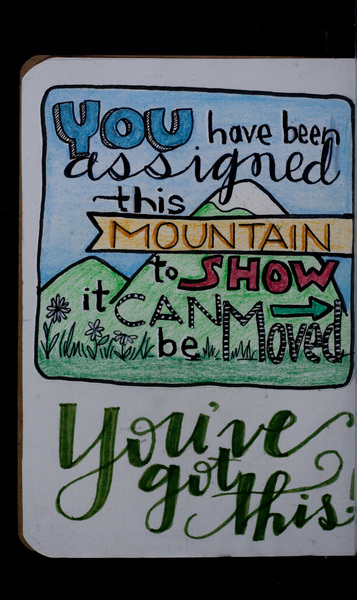 YOU have been
assigned
this
MOUNTAIN
to SHOW
it CAN
be Moved
You've
got
this!